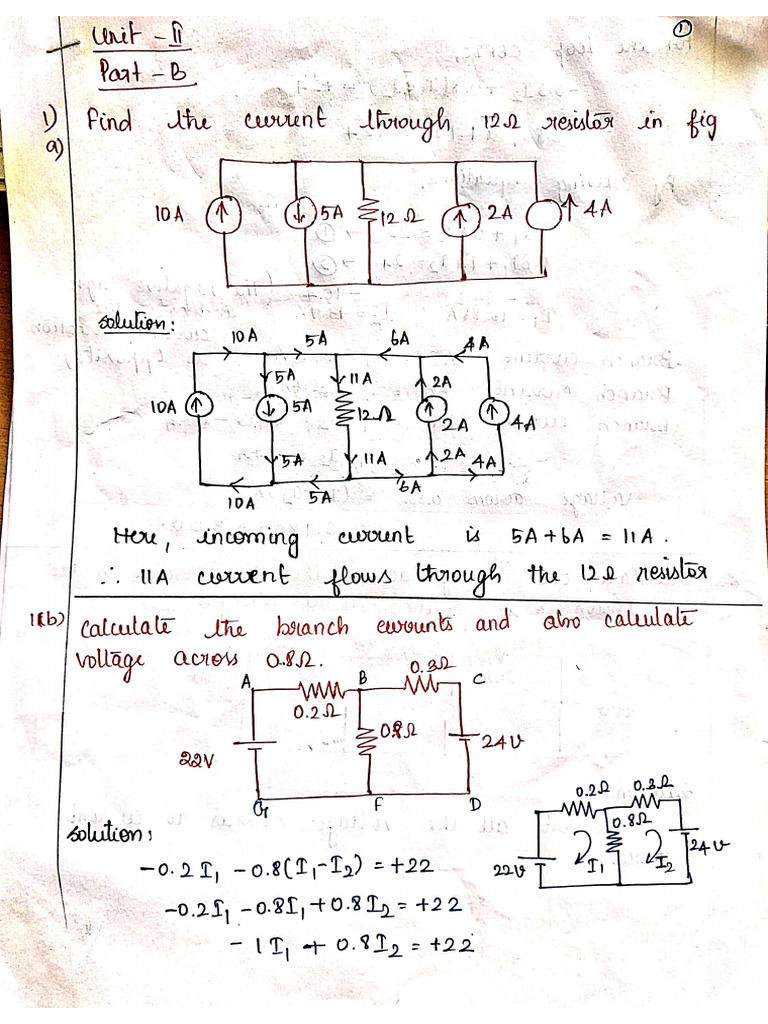 ①
Unit - II
Part - B
1) Find the current through 12Ω resistor in fig
a)
10A 5A 12Ω 2A 4A
Solution:
10A 5A 6A 4A
5A 11A 2A
10A 5A 12Ω 2A 4A
5A 11A 2A 4A
10A 5A 6A
Here, incoming current is 5A+6A = 11A.
∴ 11A current flows through the 12Ω resistor
1(b) Calculate the branch currents and also calculate
voltage across 0.8Ω.
A B 0.3Ω C
0.2Ω
0.8Ω
22V 24V
G F D
0.2Ω 0.3Ω
0.8Ω
22V I₁ I₂ 24V
Solution:
-0.2I₁ -0.8(I₁-I₂) = +22
-0.2I₁ -0.8I₁+0.8I₂ = +22
-1I₁ + 0.8I₂ = +22